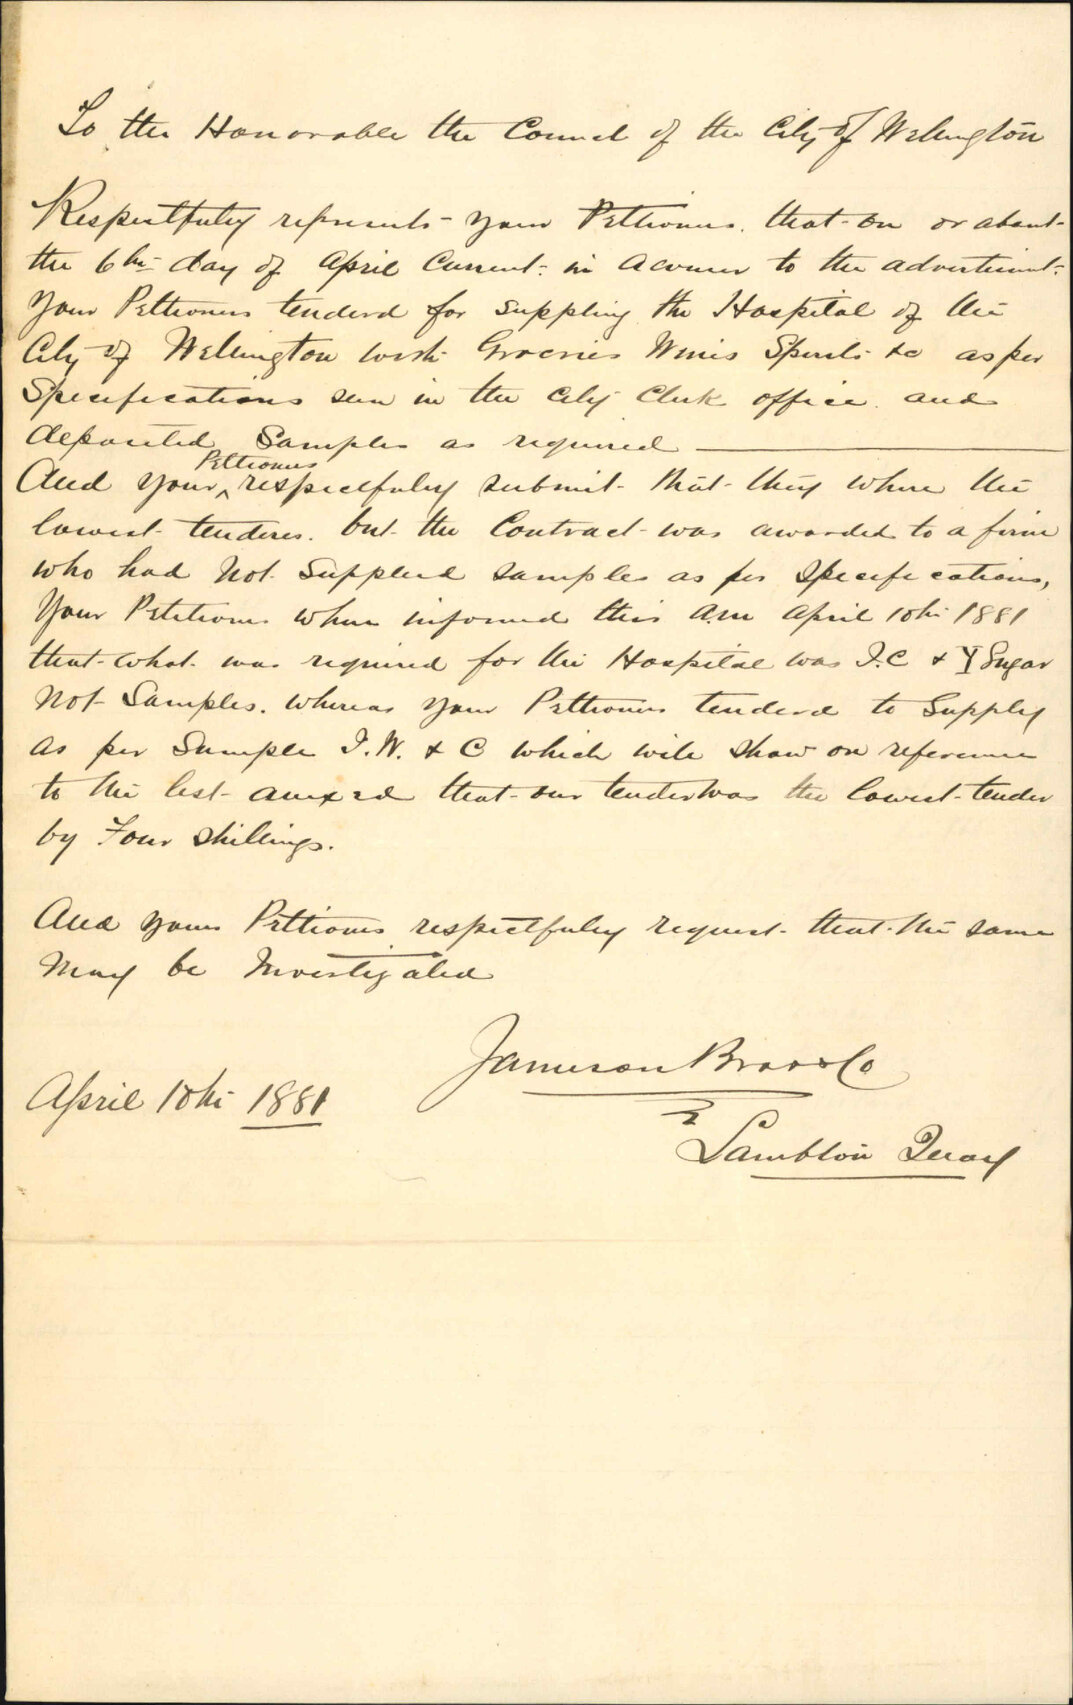 To the Honorable the Council of the City of Wellington
Respectfully represents your Petitioners. that on or about
the 6th day of April Current. in to the advertisment.
Your Petitioners tenderd for suppling the Hospital of the
City of Wellington with Groceries Wines Spirits &c as per
Specifications seen in the City Clerk office and
deposited Samples as required
Petitioners
And your ‸ respectfully submit that they where the
lowest tenderes. but the Contract was awarded to a firm
who had Not Supplied samples as per specifications,
Your Petitioners where informed this am April 10th 1881
that what was required for the Hospital was I.C & Sugar
Not Samples. whereas your Petitioners tenderd to Supply
as per Sample I.W. & C which will show on reference
to the list anexed that our tender was the lowest tender
by Four shillings.
And your Petitioners respectfully request that the same
May be Investigated
Jameson Bros & Co
April 10th 1881
Lambton Quay